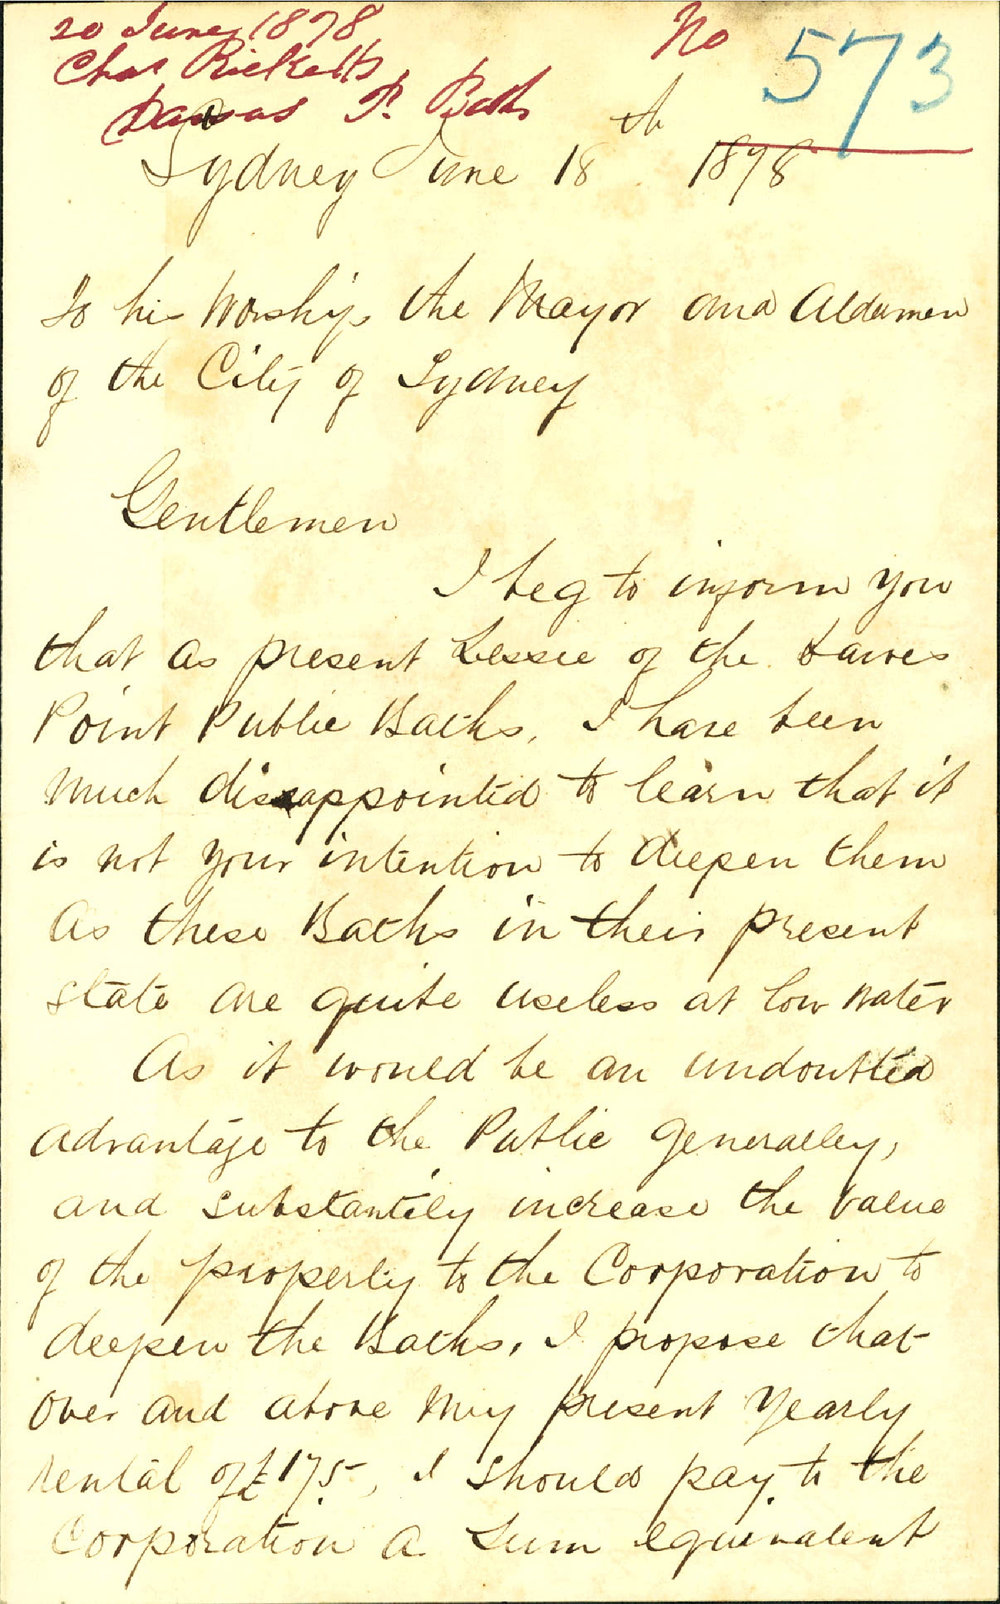 20 June 1878
Chas Ricketts
Dawes P. Baths
No 573
Sydney June 18th 1878
To his Worship the Mayor and Aldermen
of the City of Sydney
Gentlemen
I beg to inform you
that as present Lessee of the Dawes
Point Public Baths, I have been
much disappointed to learn that it
is not your intention to deepen them
As these Baths in their present
state are quite useless at low water
As it would be an undoubted
advantage to the Public generally,
and substantily increase the value
of the property to the Corporation to
deepen the Baths, I propose that
over and above my present yearly
rental of £175, I should pay to the
Corporation a sum equivalent